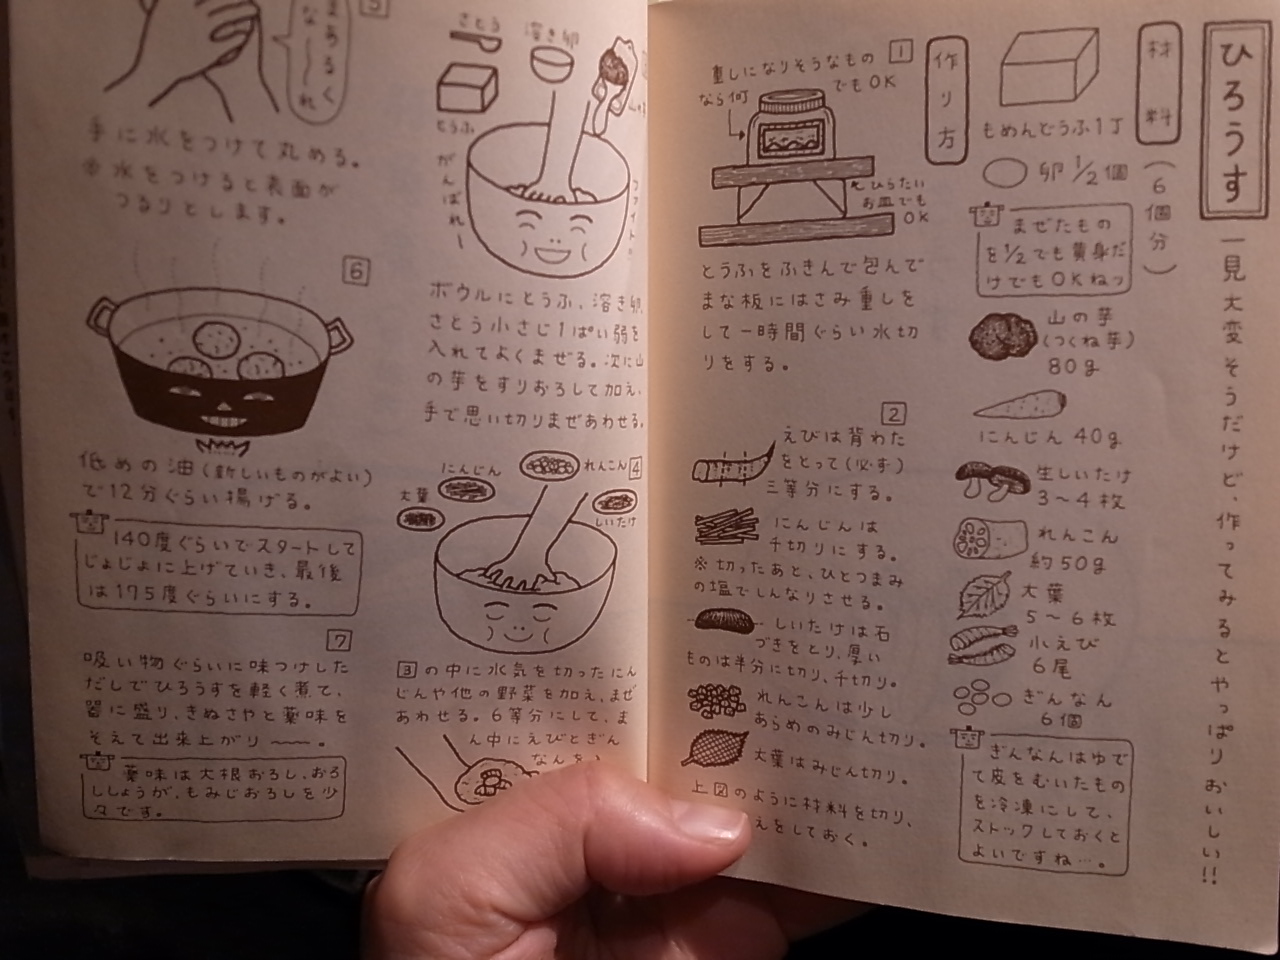 ひろうす
一見大変そうだけど、作ってみるとやっぱりおいしい!!
材料
(6個分)
もめんどうふ1丁
卵1/2個
まぜたもの
を1/2でも黄身だ
けでもOKねっ
山の芋
(つくね芋)
80g
にんじん 40g
生しいたけ
3〜4枚
れんこん
約50g
大葉
5〜6枚
小えび
6尾
ぎんなん
6個
ぎんなんはゆで
て皮をむいたもの
を冷凍にして、
ストックしておくと
よいですね…。
作り方
1
重しになりそうなもの
なら何でもOK
ひらたい
お皿でも
OK
とうふをふきんで包んで
まな板にはさみ重しを
して一時間ぐらい水切
りをする。
2
えびは背わた
をとって(必ず)
三等分にする。
にんじんは
千切りにする。
※切ったあと、ひとつまみ
の塩でしんなりさせる。
しいたけは石
づきをとり、厚い
ものは半分に切り、千切り。
れんこんは少し
あらめのみじん切り。
大葉はみじん切り。
上図のように材料を切り、
えをしておく。
さとう
溶き卵
とうふ
がんばれー
ファイトー
ボウルにとうふ、溶き卵、
さとう小さじ1ぱい弱を
入れてよくまぜる。次に山
の芋をすりおろして加え、
手で思い切りまぜあわせる。
4
にんじん
れんこん
大葉
しいたけ
3の中に水気を切ったにん
じんや他の野菜を加え、まぜ
あわせる。6等分にして、ま
ん中にえびとぎん
なんを
5
まあるく
な〜〜れ
手に水をつけて丸める。
※水をつけると表面が
つるりとします。
6
低めの油(新しいものがよい)
で12分ぐらい揚げる。
140度ぐらいでスタートして
じょじょに上げていき、最後
は175度ぐらいにする。
7
吸い物ぐらいに味つけした
だしでひろうすを軽く煮て、
器に盛り、きぬさやと薬味を
そえて出来上がり〜〜。
薬味は大根おろし、おろ
ししょうが、もみじおろしを少
々です。